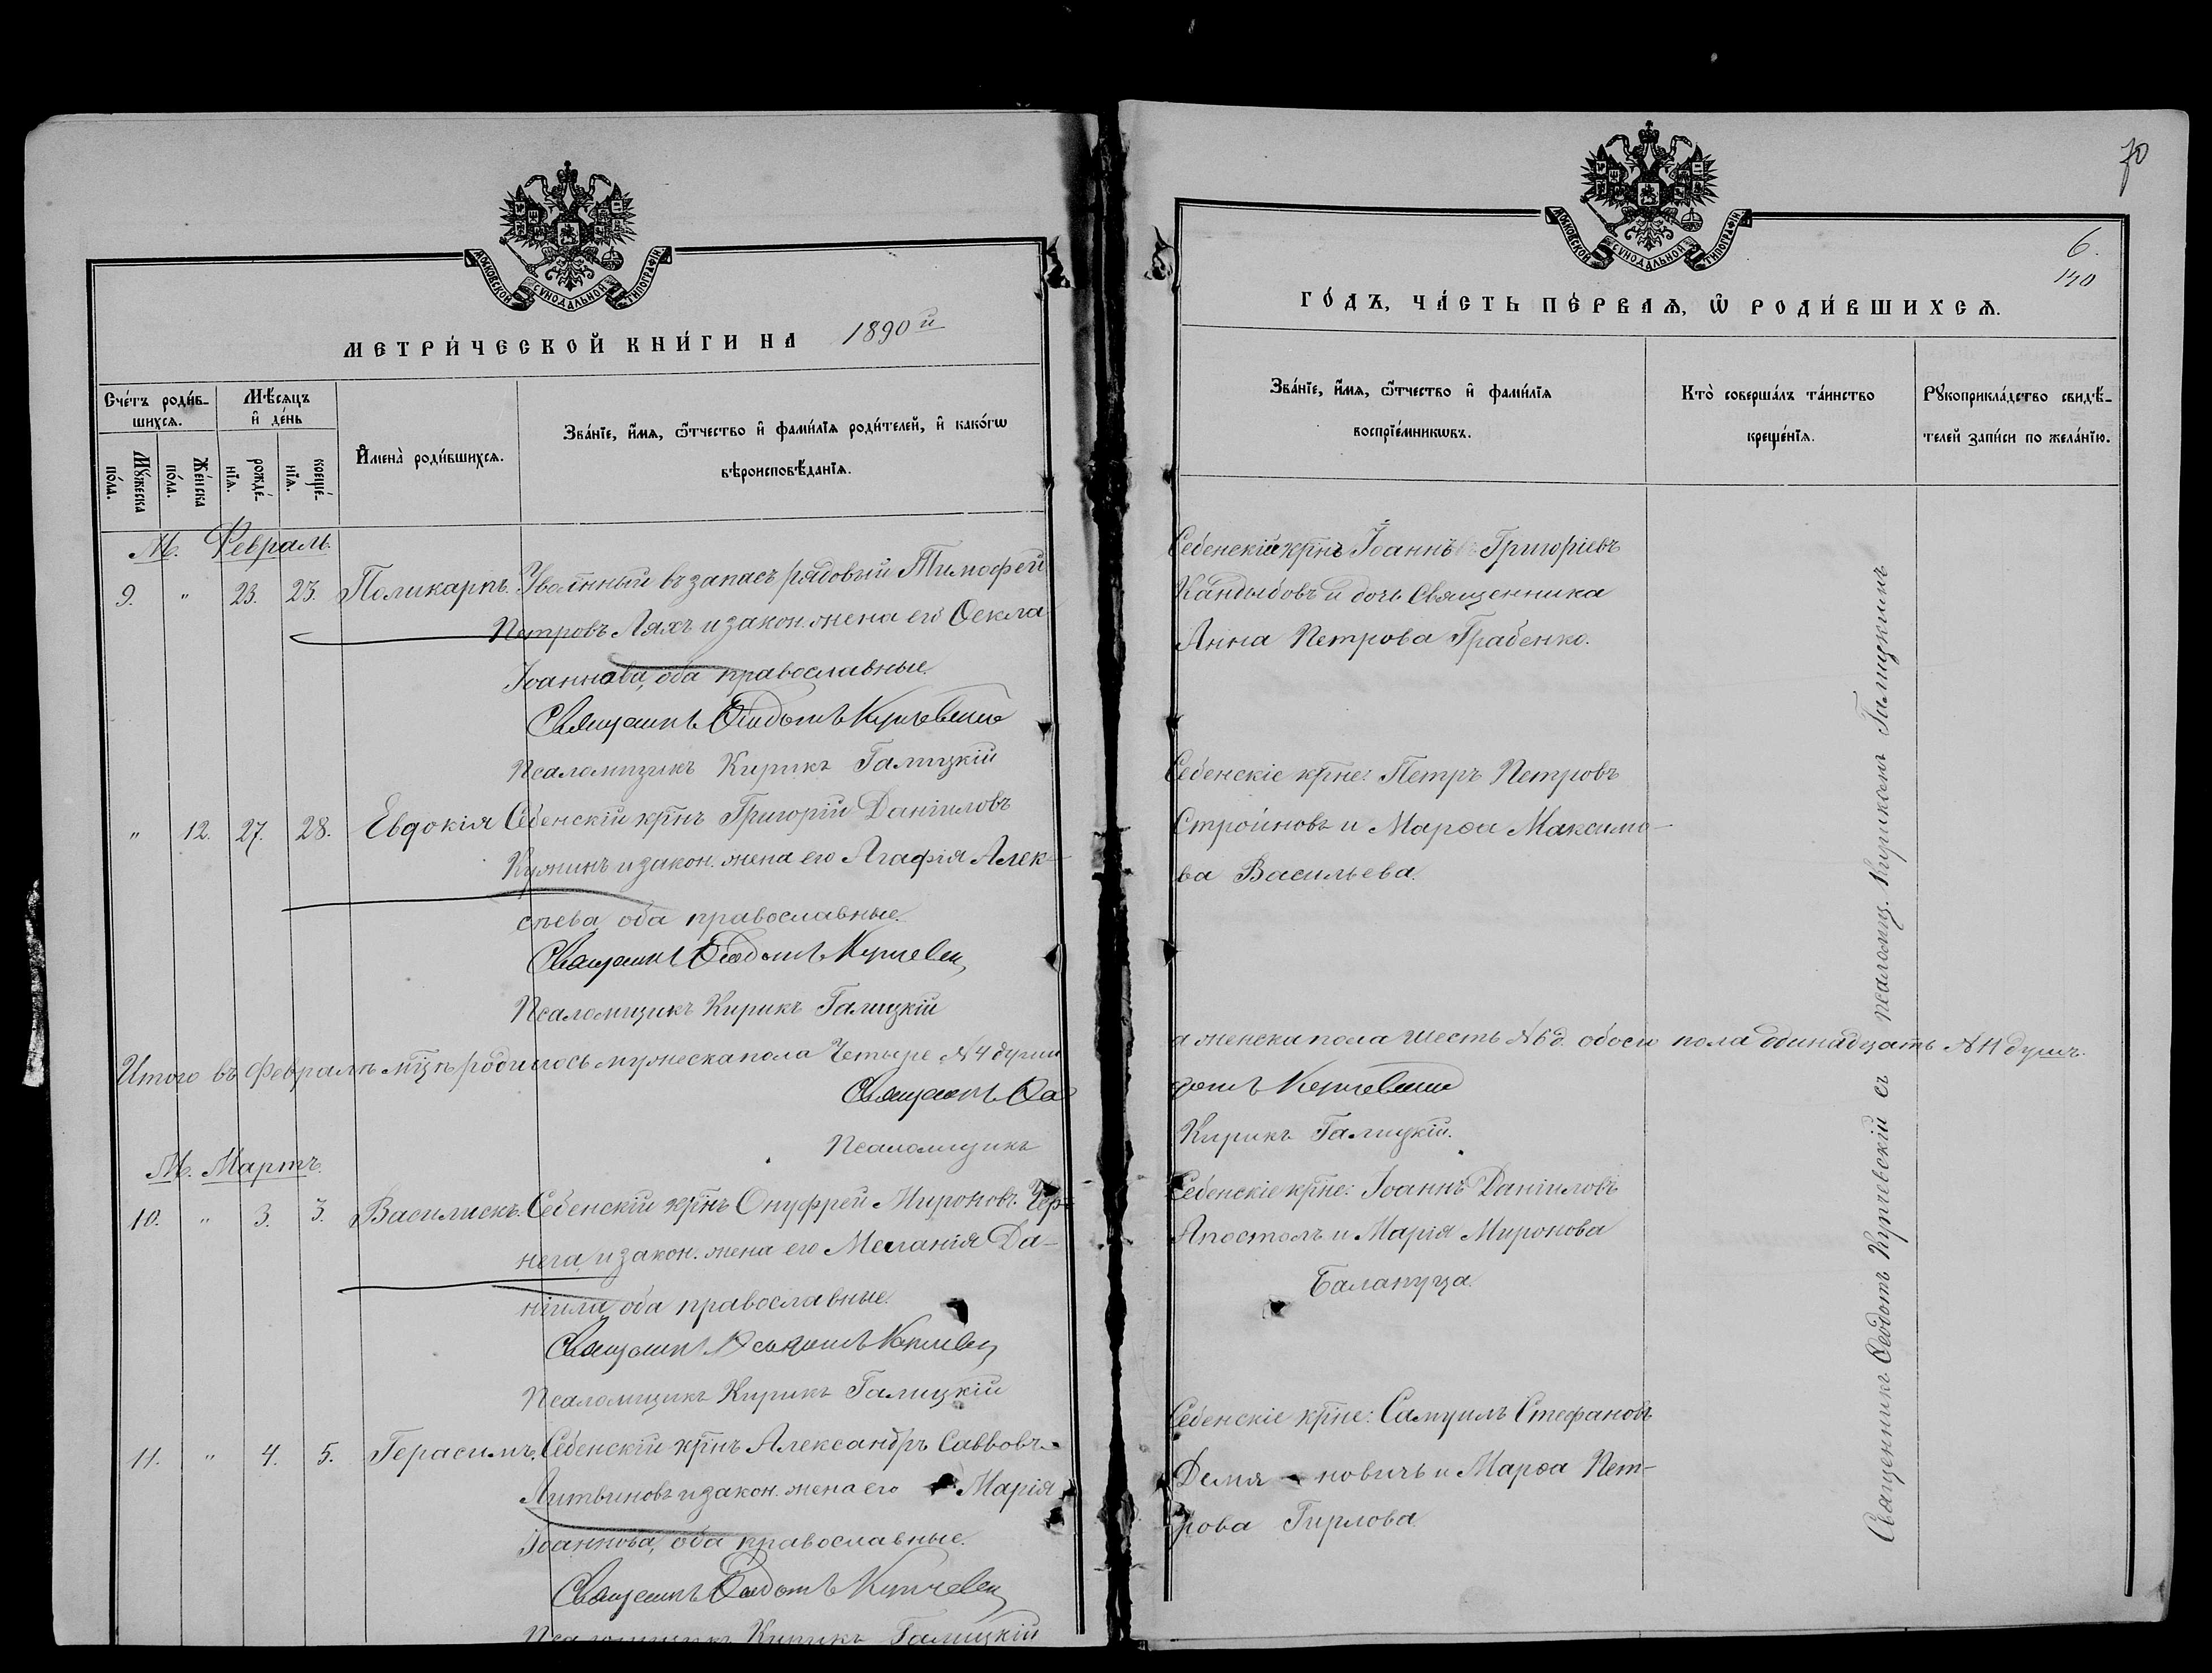 МОСКОВСКОЙ СѴНОДАЛЬНОЙ ТИПОГРАФІИ.
МЕТРИ́ЧЕСКОЙ КНИ́ГИ НА 1890й
Сче́тъ роди́вшихсѧ.
Мꙋ́жеска по́ла.
Же́нска по́ла.
Мѣ́сѧцъ и҆ де́нь
рожде́нїѧ.
креще́нїѧ.
И҆мена̀ роди́вшихсѧ.
Зва́нїе, и҆́мѧ, ѻ҆́тчество и҆ фами́лїѧ роди́телей, и҆ како́гѡ
вѣроисповѣ́данїѧ.
М. Февраль.
9. " 23. 23. Поликарпъ. Уволенный въ запасъ рядовый Тимофей
Петровъ Ляхъ и закон. жена его Ѳекла
Іоаннова, оба православные.
Священникъ Ѳеодотъ
Псаломщикъ Кирикъ Галицкій
" 12. 27. 28. Евдокія Себенскій кр̃нъ Григорій Даніиловъ
и закон. жена его Агафія Алек-
сѣева, оба православные.
Священникъ Ѳеодотъ
Псаломщикъ Кирикъ Галицкій
Итого въ Февралѣ мц̃ѣ родилось мужеска пола Четыре № 4 души
Священникъ Ѳео
Псаломщикъ
М. Мартъ.
10. " 3. 3. Василискъ. Себенскій кр̃нъ Онуфрей Мироновъ Чер-
нега, и закон. жена его Меланія Да-
ніила, оба православные.
Священникъ
Псаломщикъ Кирикъ Галицкій
11. " 4. 5. Герасимъ. Себенскій кр̃нъ Александръ Саввовъ
Литвиновъ и закон. жена его Марія
Іоаннова, оба православные.
Священникъ Ѳеодотъ
Псаломщикъ Кирикъ Галицкій
70
МОСКОВСКОЙ СѴНОДАЛЬНОЙ ТИПОГРАФІИ.
6.
140
ГО́ДЪ, ЧА́СТЬ ПЕ́РВАѦ, Ѽ РОДИ́ВШИХСѦ.
Зва́нїе, и҆́мѧ, ѻ҆́тчество и҆ фами́лїѧ
воспрїе́мникѡвъ.
Кто̀ соверша́лъ та́инство
креще́нїѧ.
Рꙋкоприкла́дство свидѣ́-
телей за́писи по жела́нїю.
Себенскій кр̃нъ Іоаннъ Григоріевъ
Кандыбовъ и дочь Священника
Анна Петрова Грабенко.
Себенскіе кр̃не: Петръ Петровъ
Стройновъ и Марѳа Максимо-
ва Васильева.
а женска пола шесть № 6 д. обоего пола одинадцать № 11 душъ.
дотъ
Кирикъ Галицкій.
Себенскіе кр̃не: Іоаннъ Даніиловъ
Апостолъ и Марія Миронова
Балануца.
Себенскіе кр̃не: Самуилъ Стефановъ
Демяновичъ и Марѳа Пет-
рова Гирлова
Священникъ Ѳеодотъ Купчевскій съ псаломщ. Кирикомъ Галицкимъ